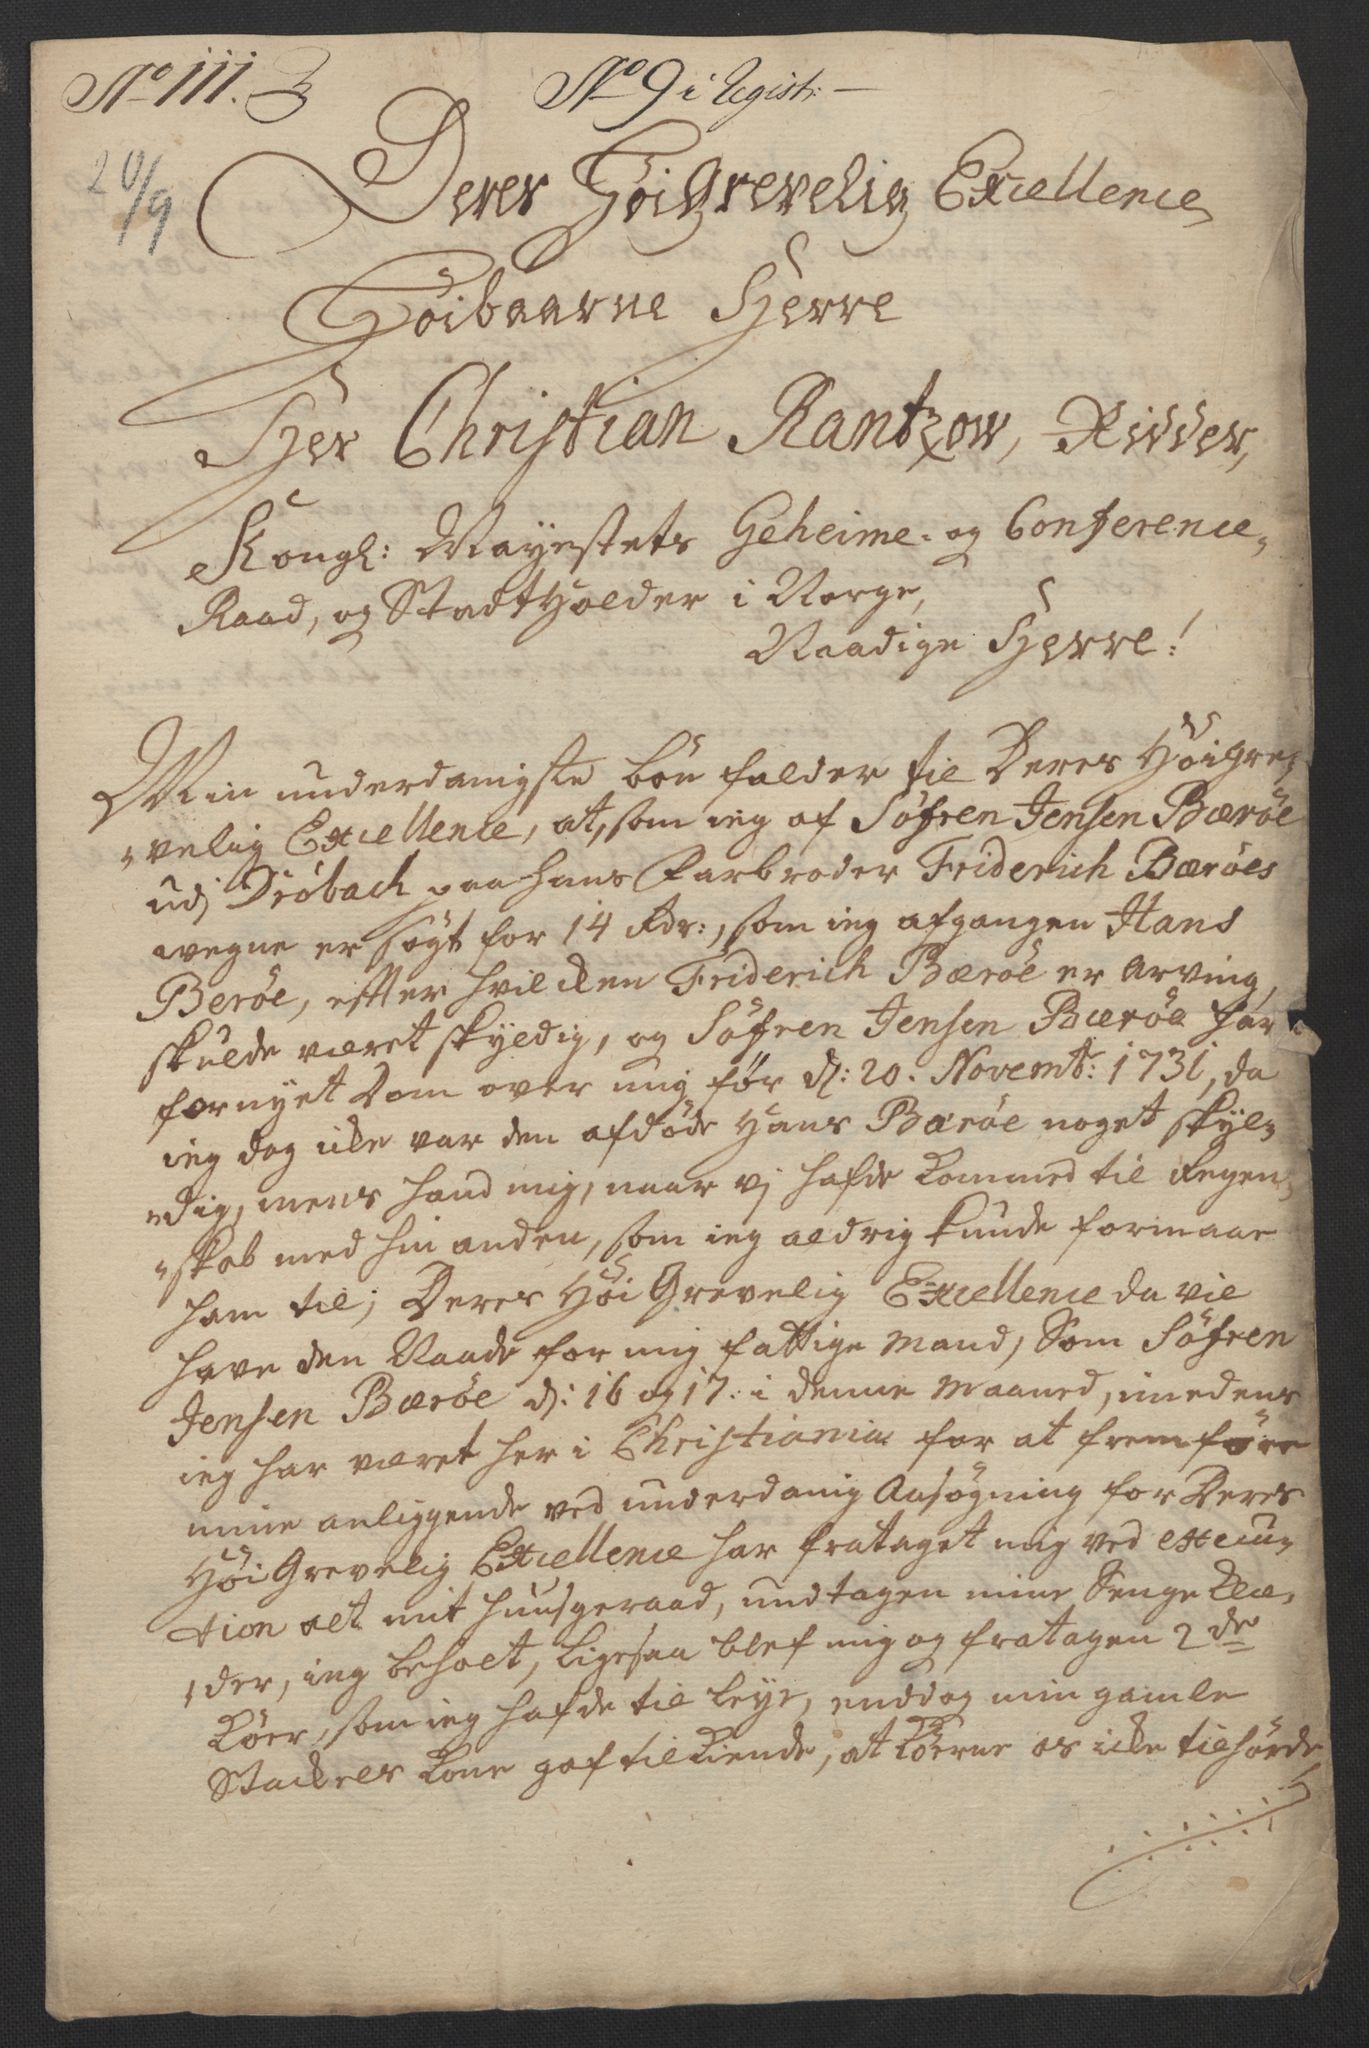 No 111. 3
No 9 i Regist:
20/9
Deres HöiGrevelig Excellence
Höibaarne Herre
Herr Christian Rantzow, Ridder,
Kongl: Mayestets Geheime- og Conference-
Raad, og StadtHolder i Norge,
Naadige Herre!
Min underdanigste bön falder til Deres HöiGre-
velig Excellence, at, som ieg af Söfren Jensen Bæröe
udj Dröbach paa hans Farbroder Friderich Bæröes
wegne er Søgt for 14 Rdr:, som ieg afgangen Hans
Beröe, effter hvilcken Friderich Bæröe er Arving,
skulde været skyldig, og Söfren Jensen Bæröe har
fornyet Dom over mig før d: 20. Novembr: 1731, da
ieg dog icke var den afdöde Hans Bæröe noget skyl-
dig, mens hand mig, naar vj hafde kommed til Regen-
skab med hin anden, som ieg aldrig kunde formaae
ham til; Deres Höi Grevelig Excellence da vil
have den Naade for mig fattige Mand, Som Söfren
Jensen Bæröe d: 16 og 17. i denne Maaned, imedens
ieg har været her i Christiania for at fremføre
mine anliggende ved underdanig Ansögning for Deres
Höi Grevelig Excellence har frataget mig ved execu-
tion alt mit huusgeraad, undtagen mine Senge Klæ-
der, ieg beholt, ligesaa blef mig og fratagen 2de
Köer, som ieg hafde til leye, enddog min gamle
Stackels Kone gaf tilkiende, at Köerne os icke tilhörde,